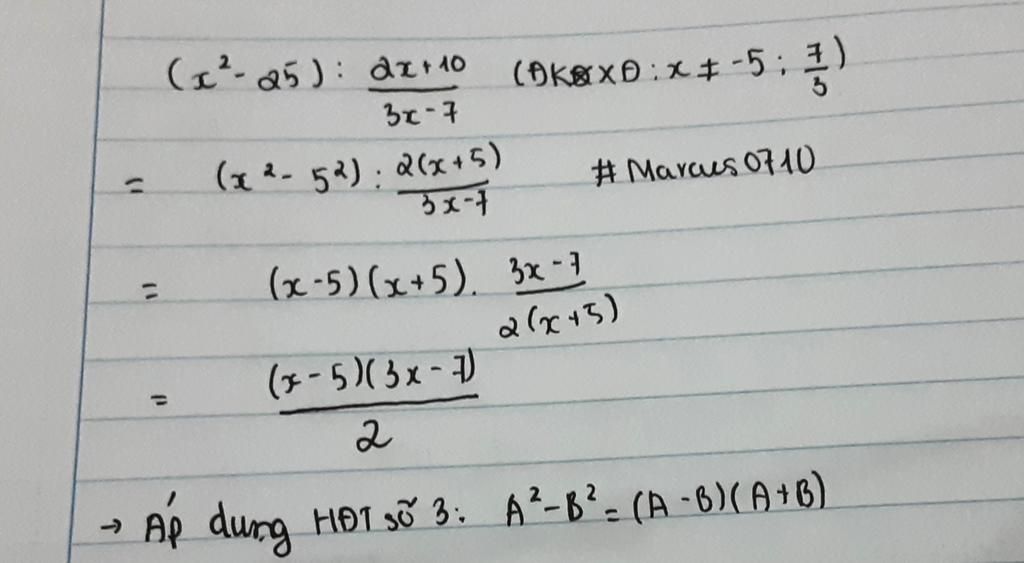 (x² - 25) : (2x+10)/(3x-7) (ĐKXĐ : x ≠ -5 ; 7/3)
= (x² - 5²) : 2(x+5)/(3x-7) #Marcus0710
= (x-5)(x+5) . (3x-7)/(2(x+5))
= (x-5)(3x-7)/2
→ Áp dụng HĐT số 3: A²-B² = (A-B)(A+B)